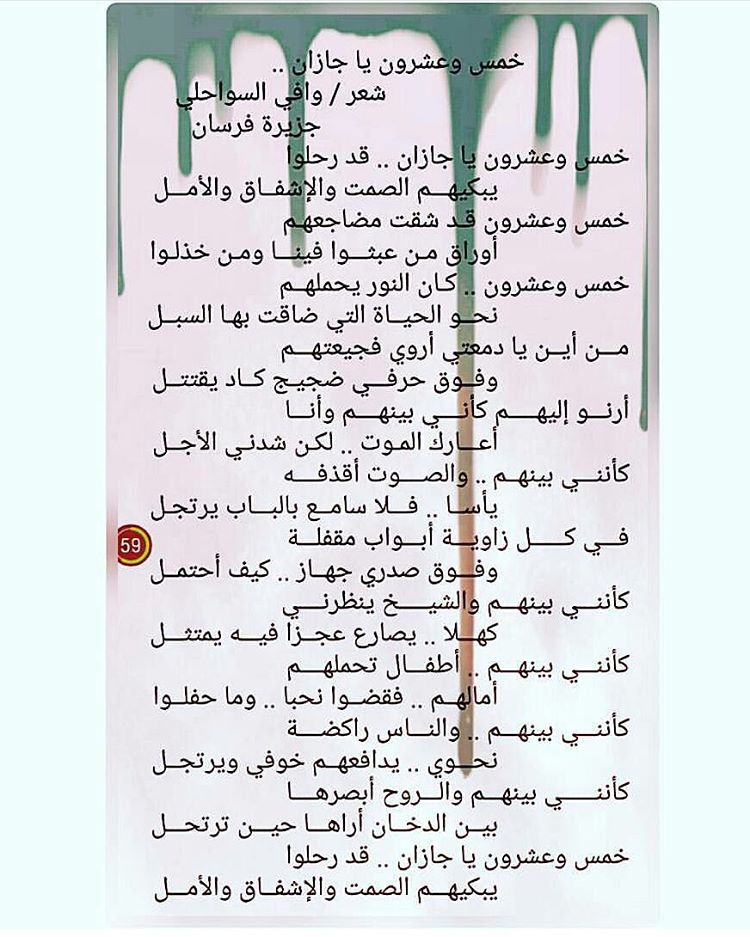 خمس وعشرون يا جازان ..
شعر / وافي السواحلي
جزيرة فرسان
خمس وعشرون يا جازان .. قد رحلوا
يبكيهم الصمت والإشفاق والأمل
خمس وعشرون قد شقت مضاجعهم
أوراق من عبثوا فينا ومن خذلوا
خمس وعشرون .. كان النور يحملهم
نحو الحياة التي ضاقت بها السبل
من أين يا دمعتي أروي فجيعتهم
وفوق حرفي ضجيج كاد يقتتل
أرنو إليهم كأني بينهم وأنا
أعارك الموت .. لكن شدني الأجل
كأنني بينهم .. والصوت أقذفه
يأسا .. فلا سامع بالباب يرتجل
في كل زاوية أبواب مقفلة
وفوق صدري جهاز .. كيف أحتمل
59
كأنني بينهم والشيخ ينظرني
كهلا .. يصارع عجزا فيه يمتثل
كأنني بينهم .. أطفال تحملهم
أمالهم .. فقضوا نحبا .. وما حفلوا
كأنني بينهم .. والناس راكضة
نحوي .. يدافعهم خوفي ويرتجل
كأنني بينهم والروح أبصرها
بين الدخان أراها حين ترتحل
خمس وعشرون يا جازان .. قد رحلوا
يبكيهم الصمت والإشفاق والأمل